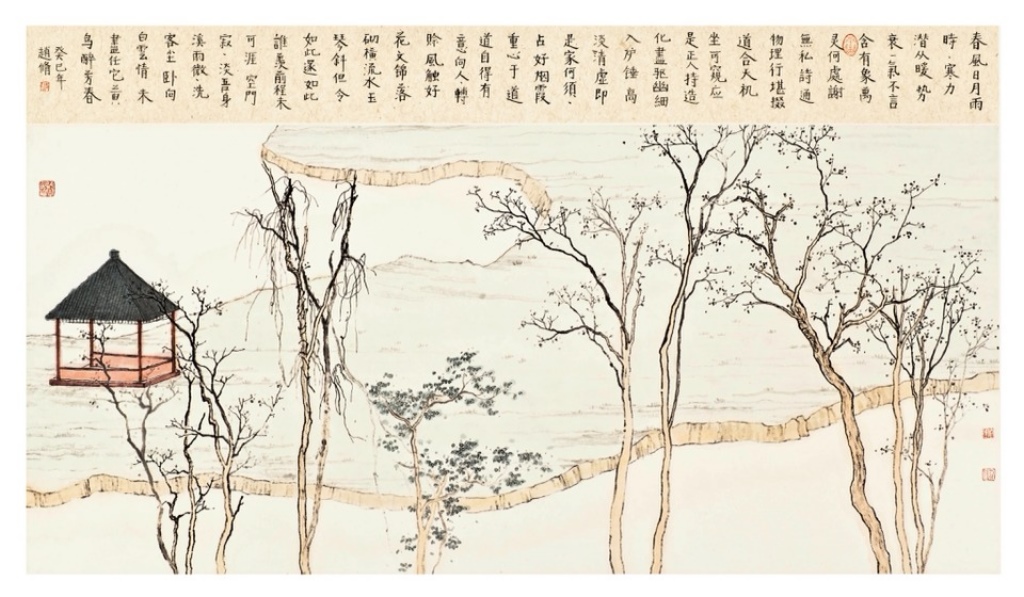 春風日月雨
時·寒力
潜从暖势
衰·氣不言
含有象萬
灵何處謝
無私詩通
物理行堪掇
道合天机
坐可窺应
是正人持造
化盡驱幽細
入炉锤高
淡清虚即
是家何須·
占好烟霞
重心于道
道自得有
意向人·轉
賒風触好
花文锦落
砌横流水玉
琴斜但令
如此還如此
誰羨前程未
可涯空門
寂·淡吾身
溪雨微·洗
客尘卧向
白雲情未
盡任它黄
鸟醉芳春
癸巳年
趙脩